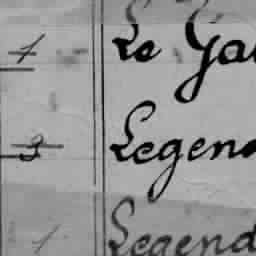 1 Le Gal
3 Legend
1 Legend